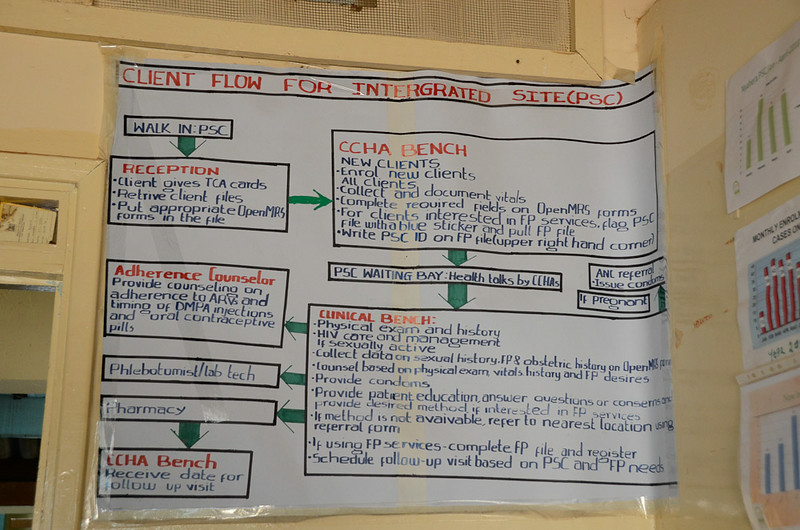 CLIENT FLOW FOR INTERGRATED SITE(PSC)
WALK IN:PSC
RECEPTION
•Client gives TCA cards
•Retrive client files
•Put appropriate OpenMRS
forms in the file
CCHA BENCH
NEW CLIENTS
•Enrol new clients
All clients
•Collect and document vitals
•Complete required fields on OpenMRS forms
•For clients interested in FP services, flag PSC
file with a blue sticker and pull FP file
•Write PSC ID on FP file(upper right hand corner)
PSC WAITING BAY:Health talks by CCHAs
ANC referral
•Issue condoms
If Pregnant
Adherence Counselor
Provide counseling on
adherence to ARVs and
timing of DMPA injections
and oral contraceptive
pills
CLINICAL BENCH:
•Physical exam and history
•HIV care and management
If sexually active
•Collect data on sexual history, FP & obstetric history on OpenMRS
•Counsel based on physical exam, vitals, history and FP desires
•Provide condoms
•Provide patient education, answer questions or concerns and
provide desired method if interested in FP services
•If method is not avaivable, refer to nearest location using
referral form
•If using FP services-complete FP file and register
•Schedule follow-up visit based on PSC and FP needs
Phlebotomist/lab tech
Pharmacy
CCHA Bench
Receive date for
follow up visit
MONTHLY ENROL
CASES ON